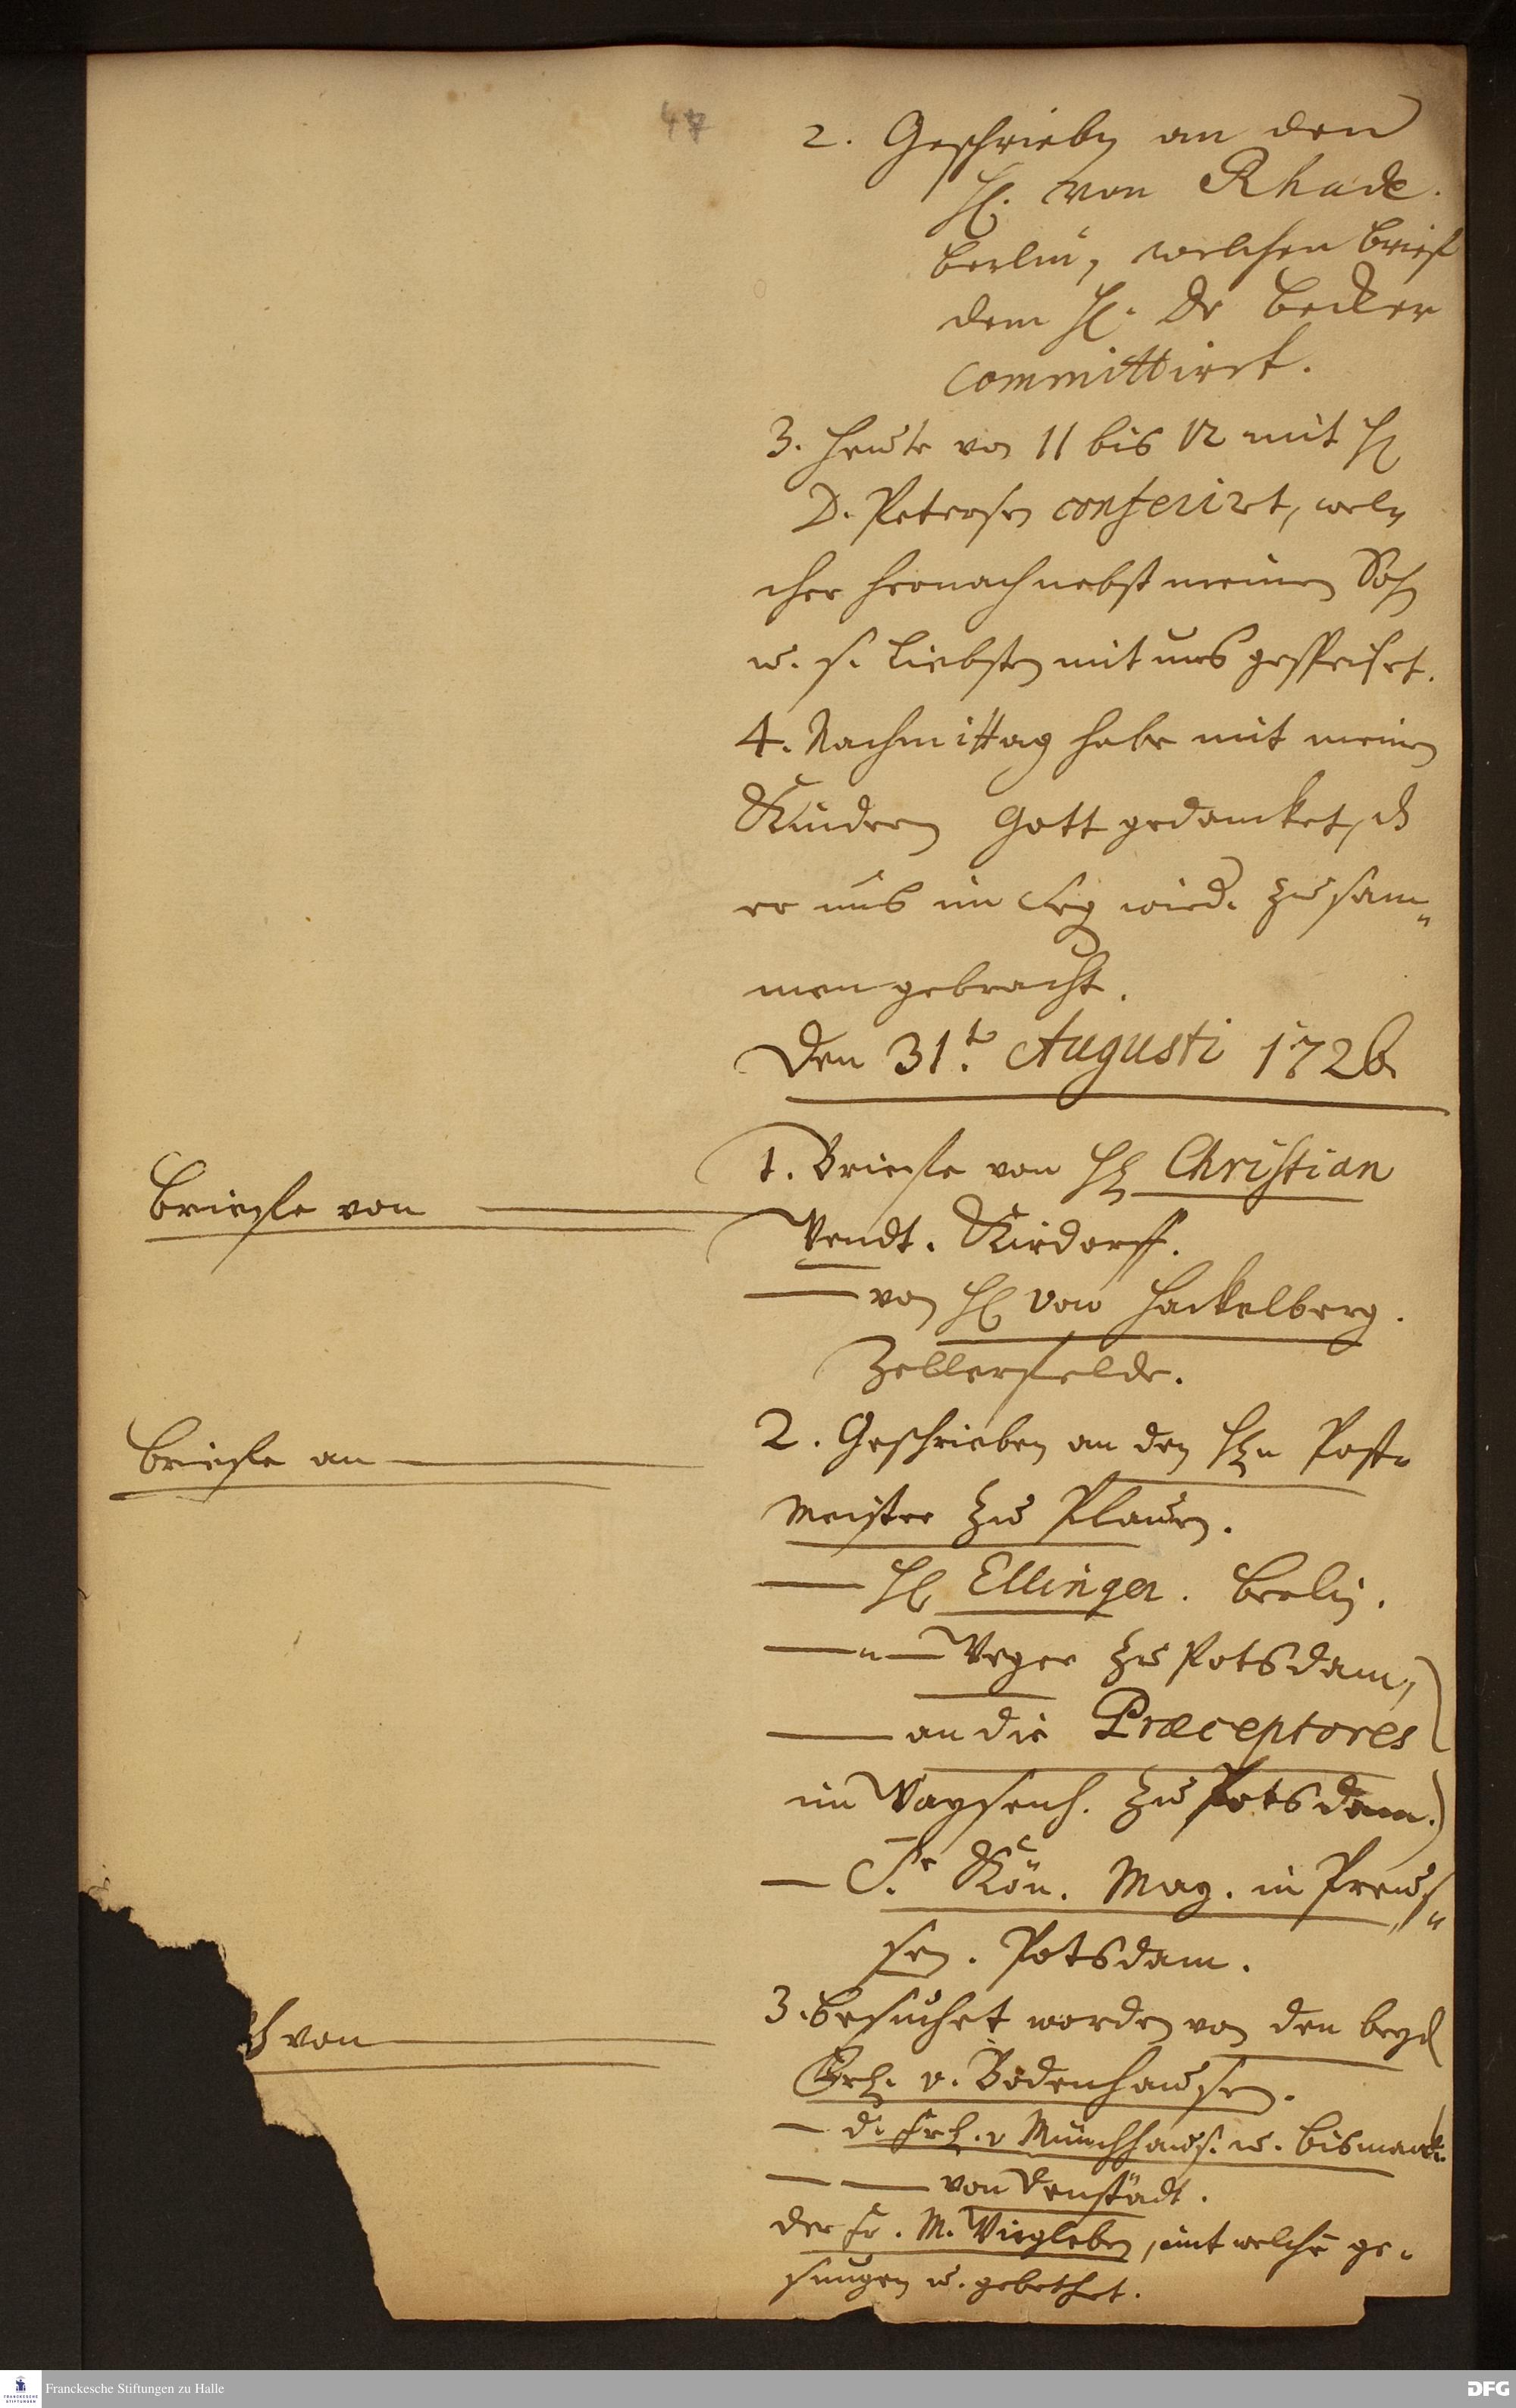 47
2. Geschrieben an den
H. von Rhade.
Berlin, welchen Brief
dem H. Dr Becker
committirt.
3. Heute von 11 bis 12 mit H
D. Petersen conferirt, wel=
cher hernach nebst meinen Sohn
u. s. Liebsten mit uns gespeiset.
4. Nachmittag habe mit meinen
Kindern Gott gedancket, dß
er uns im Seg wied. zusam=
men gebracht.
Den 31.t Augusti 1726.
Briefe von
1. Briefe von H Christian
Wendt. Kirdorff.
von H von Hackelberg.
Zellerfelde.
Briefe an
2. Geschrieben an den Hn Post=
Meister zu Plauen.
H Ellinger. Berlin.
" Weger zu Potsdam,
an die Præceptores
im Waysenh. zu Potsdam.
Sr Kön. May. in Preus=
sen. Potsdam.
von
3. Besuchet worden von den beyd
Frh. v. Bodenhausen.
d. Frh. v Münchhaus. u. Bismarck.
von Denstädt.
der Fr. M. Wiegleben, mit welcher ge=
sungen u. gebethet.
Franckesche Stiftungen zu Halle
DFG